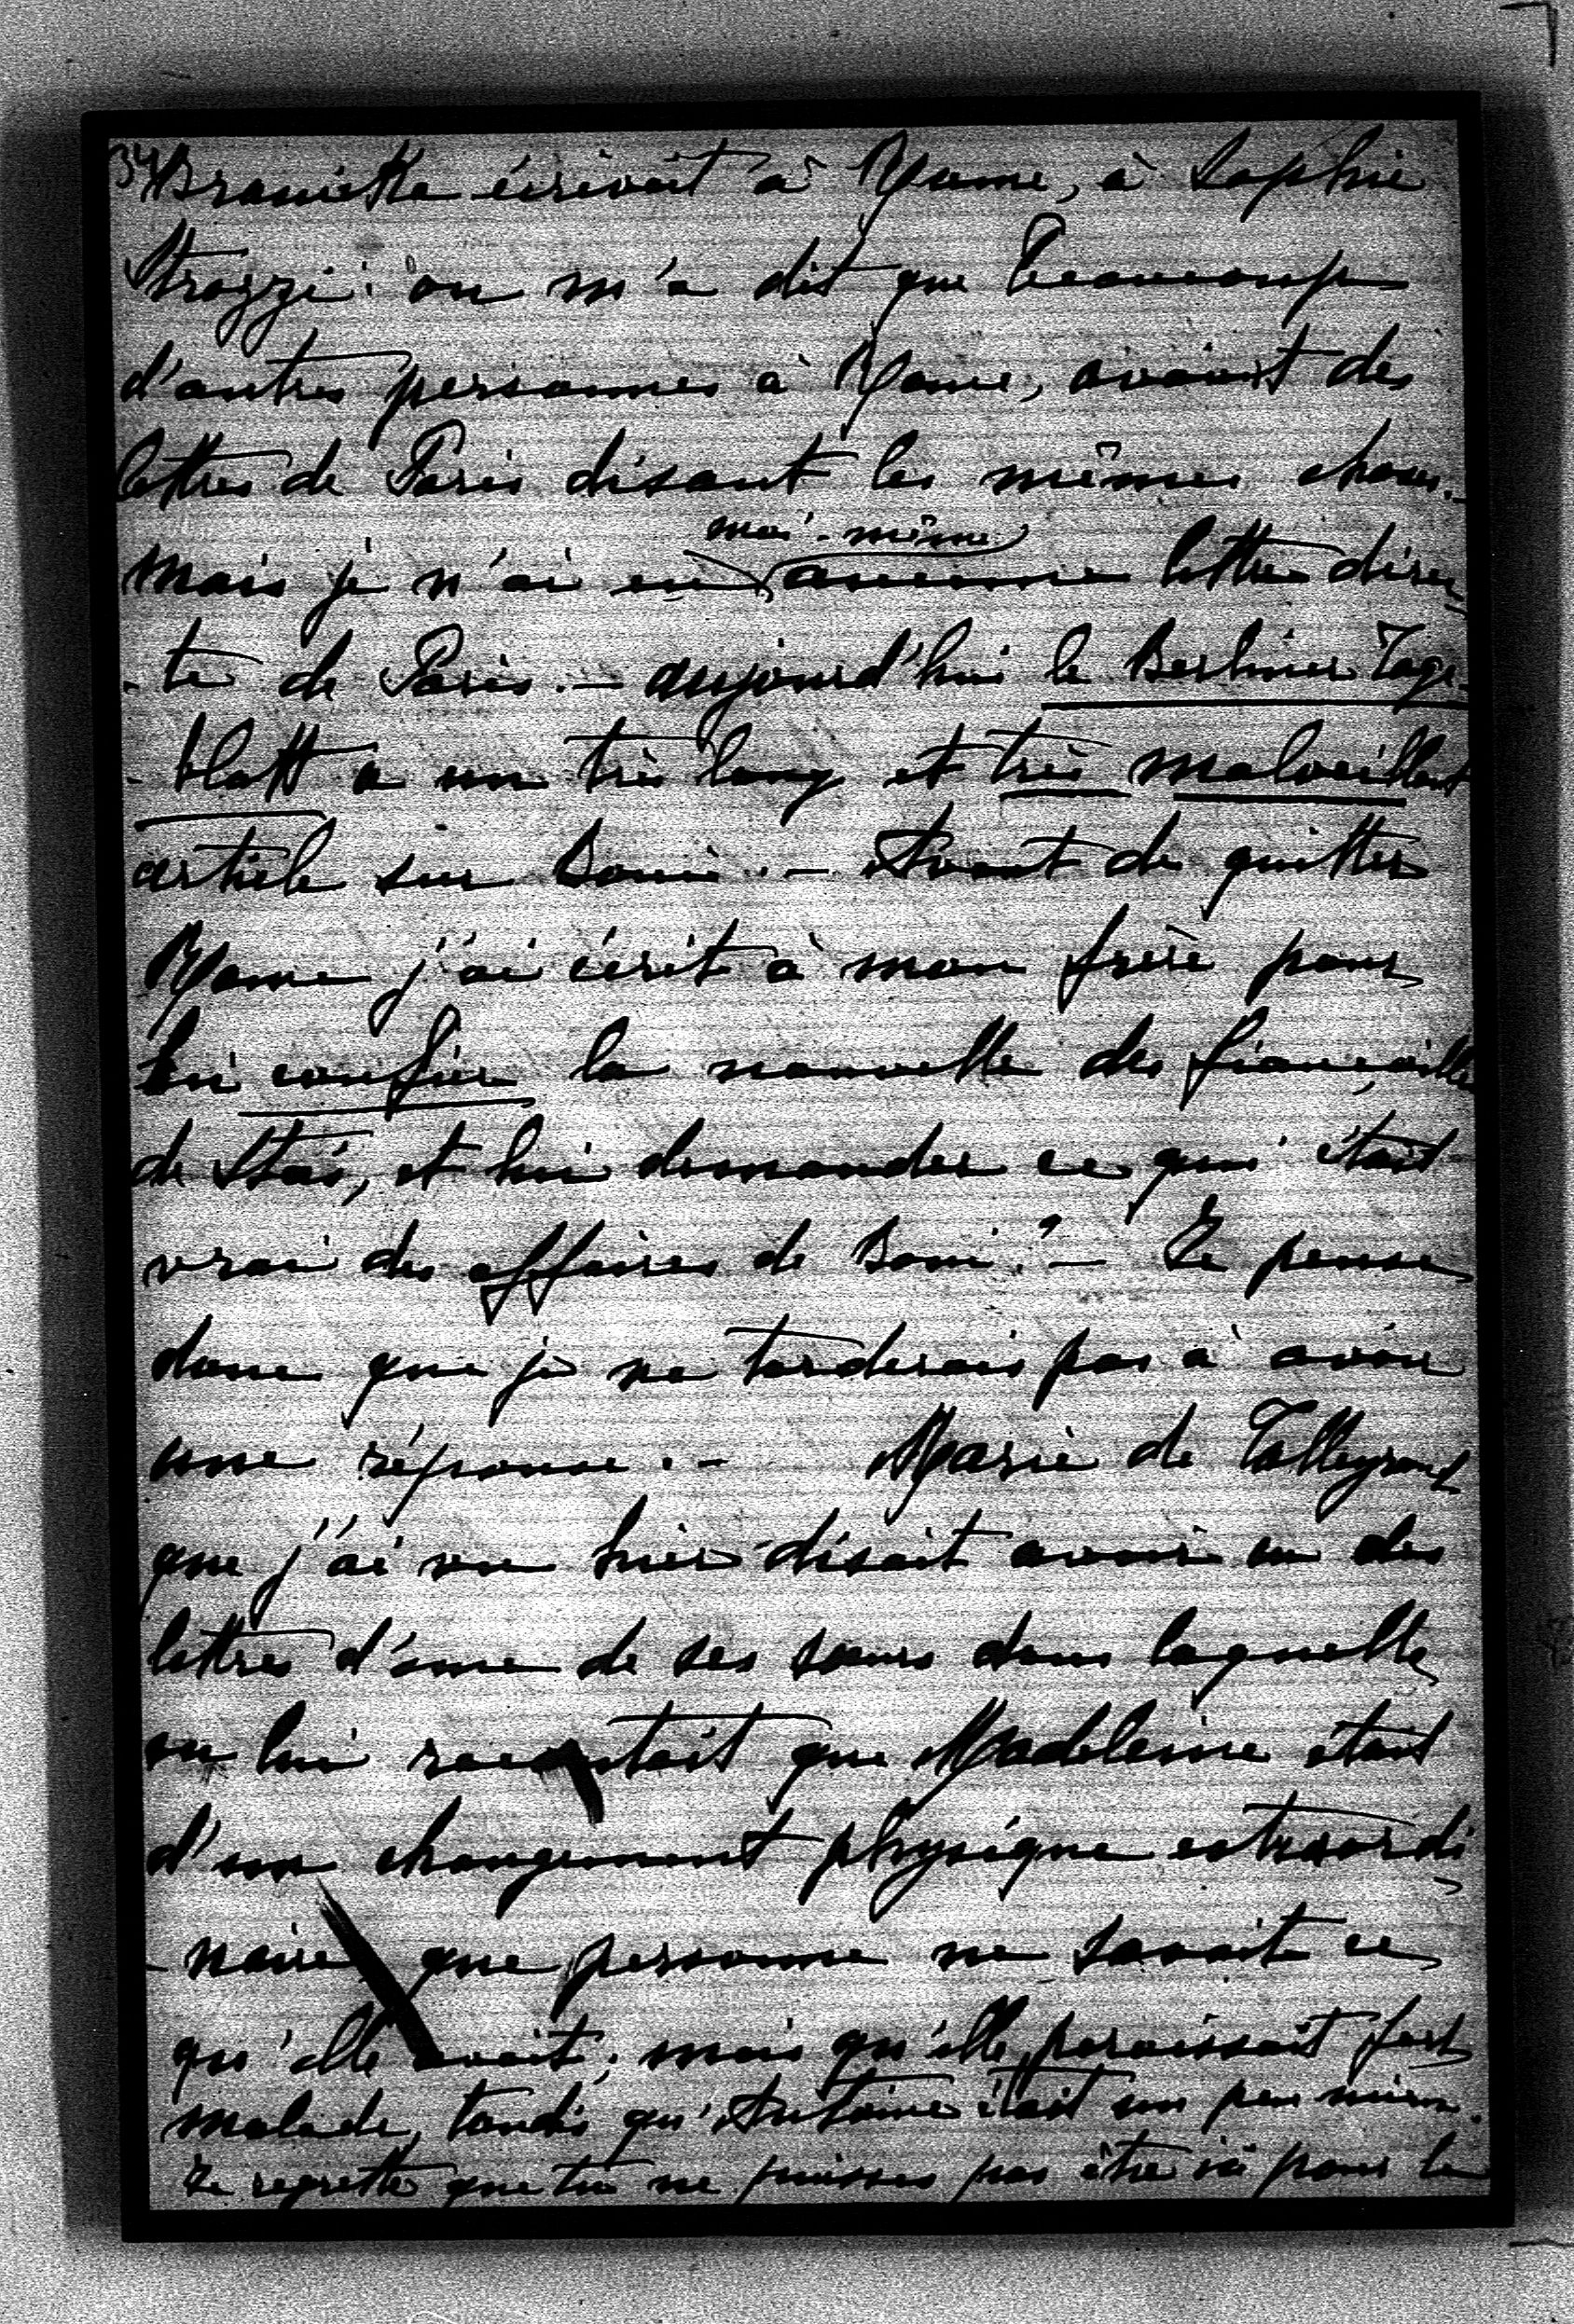 34 écrivait à Rome, à Sophie
Strozzi: on m'a dit que beaucoup
d'autres personnes à Rome, avaient des
lettres de Paris disant les mêmes choses.-
moi-même
mais je n'ai eu aucune lettre direc
-te de Paris.- aujourd'hui le Berliner Tage-
-blatt a un très long et très malveillant
article sur Boni.- Avant de quitter
Rome j'ai écrit à mon frère pour
lui confier la nouvelle des fiançailles
de Stas, et lui demander ce qui était
vrai des affaires de Boni?- Je pense
donc que je ne tarderais pas à avoir
une réponse.- Marie de Talleyrand
que j'ai vue hier disait avoir eu des
lettres d'une de ses sœurs dans laquelle
on lui racontait que Madeleine était
d'un changement physique extraordi
-naire que personne ne savait ce
qu'elle avait; mais qu'elle paraissait fort
malade, tandis qu'Antoine était un peu mieux.
Je regrette que tu ne puisses pas être ici pour le